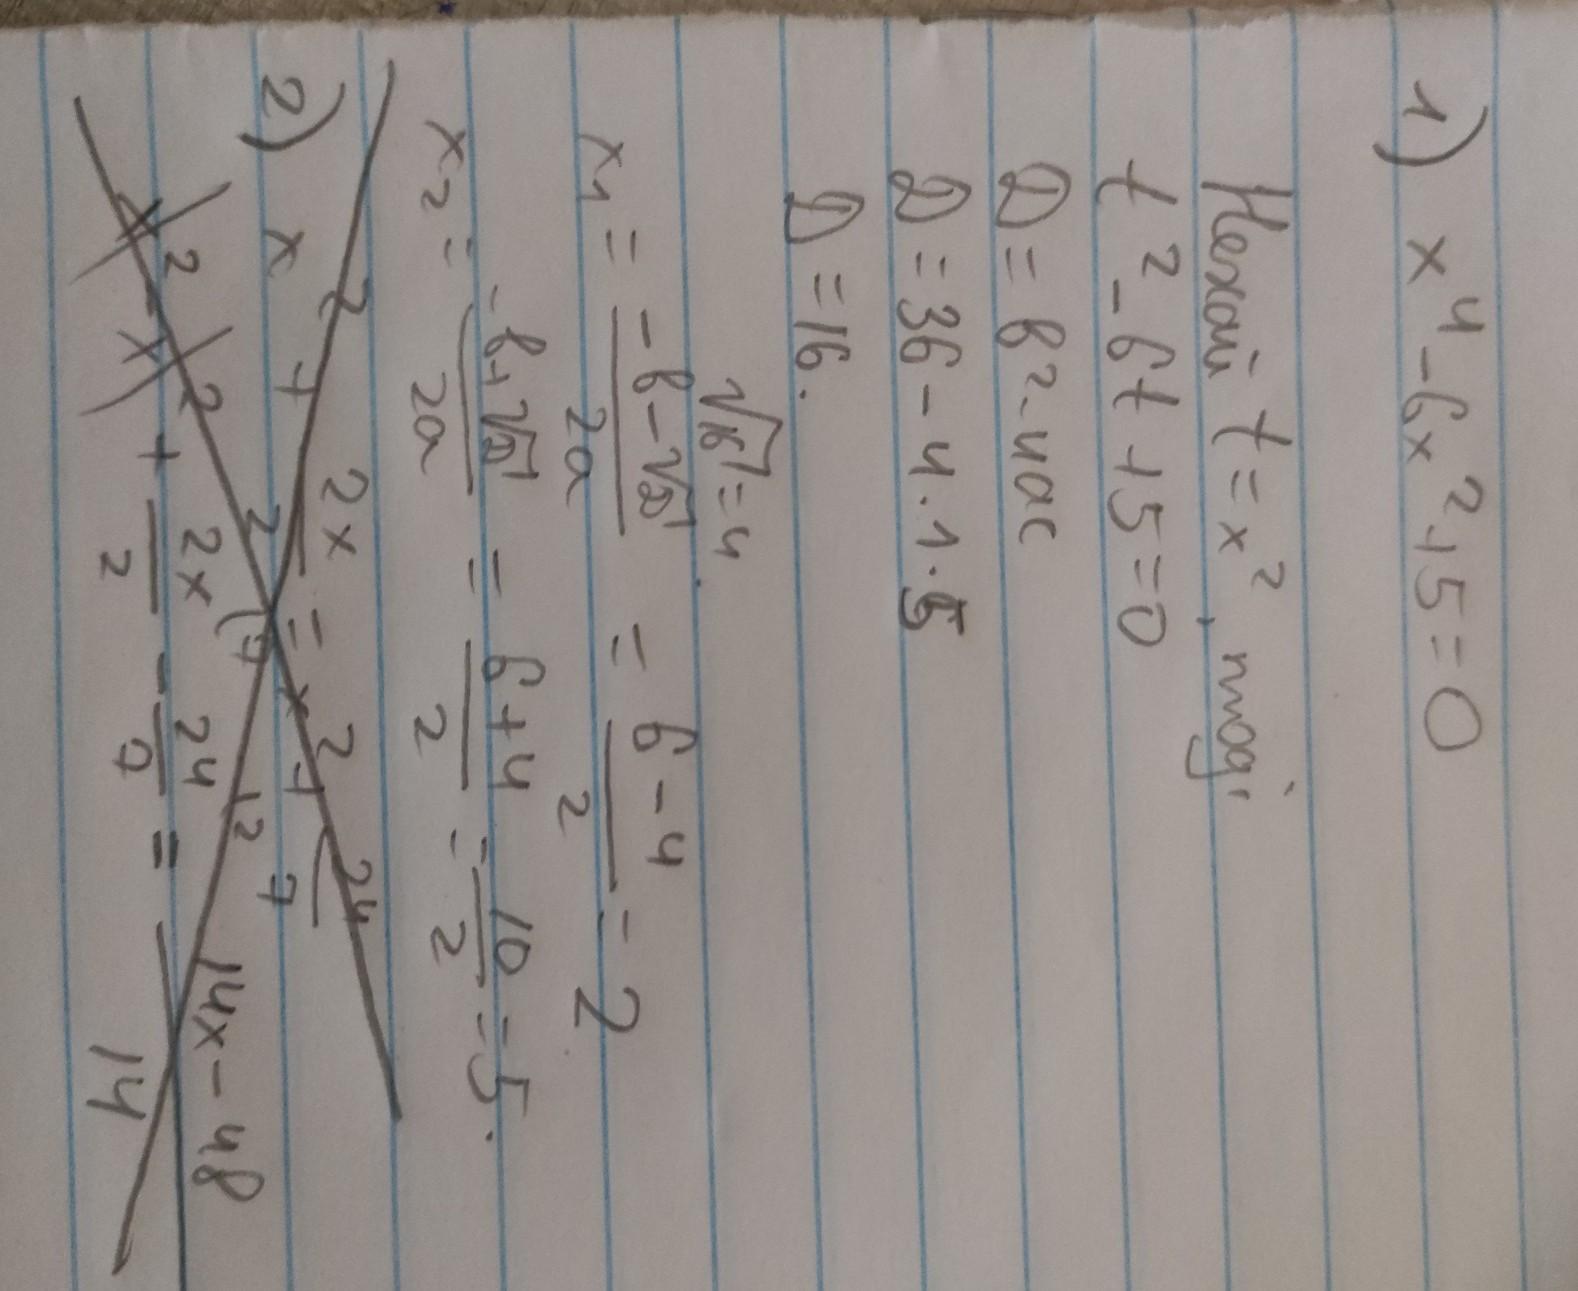 1) x⁴ - 6x² + 5 = 0
Нехай t = x², тоді
t² - 6t + 5 = 0
D = b² - 4ac
D = 36 - 4 · 1 · 5
D = 16.
√16 = 4.
x₁ = (-b - √D) / 2a = (6 - 4) / 2 = 2
x₂ = (-b + √D) / 2a = (6 + 4) / 2 = 10 / 2 = 5.
2) x² + 2x / 2 = x² + 24 / 7
x² - x² + 2x / 2 - 24 / 7 = 14x - 48 / 14